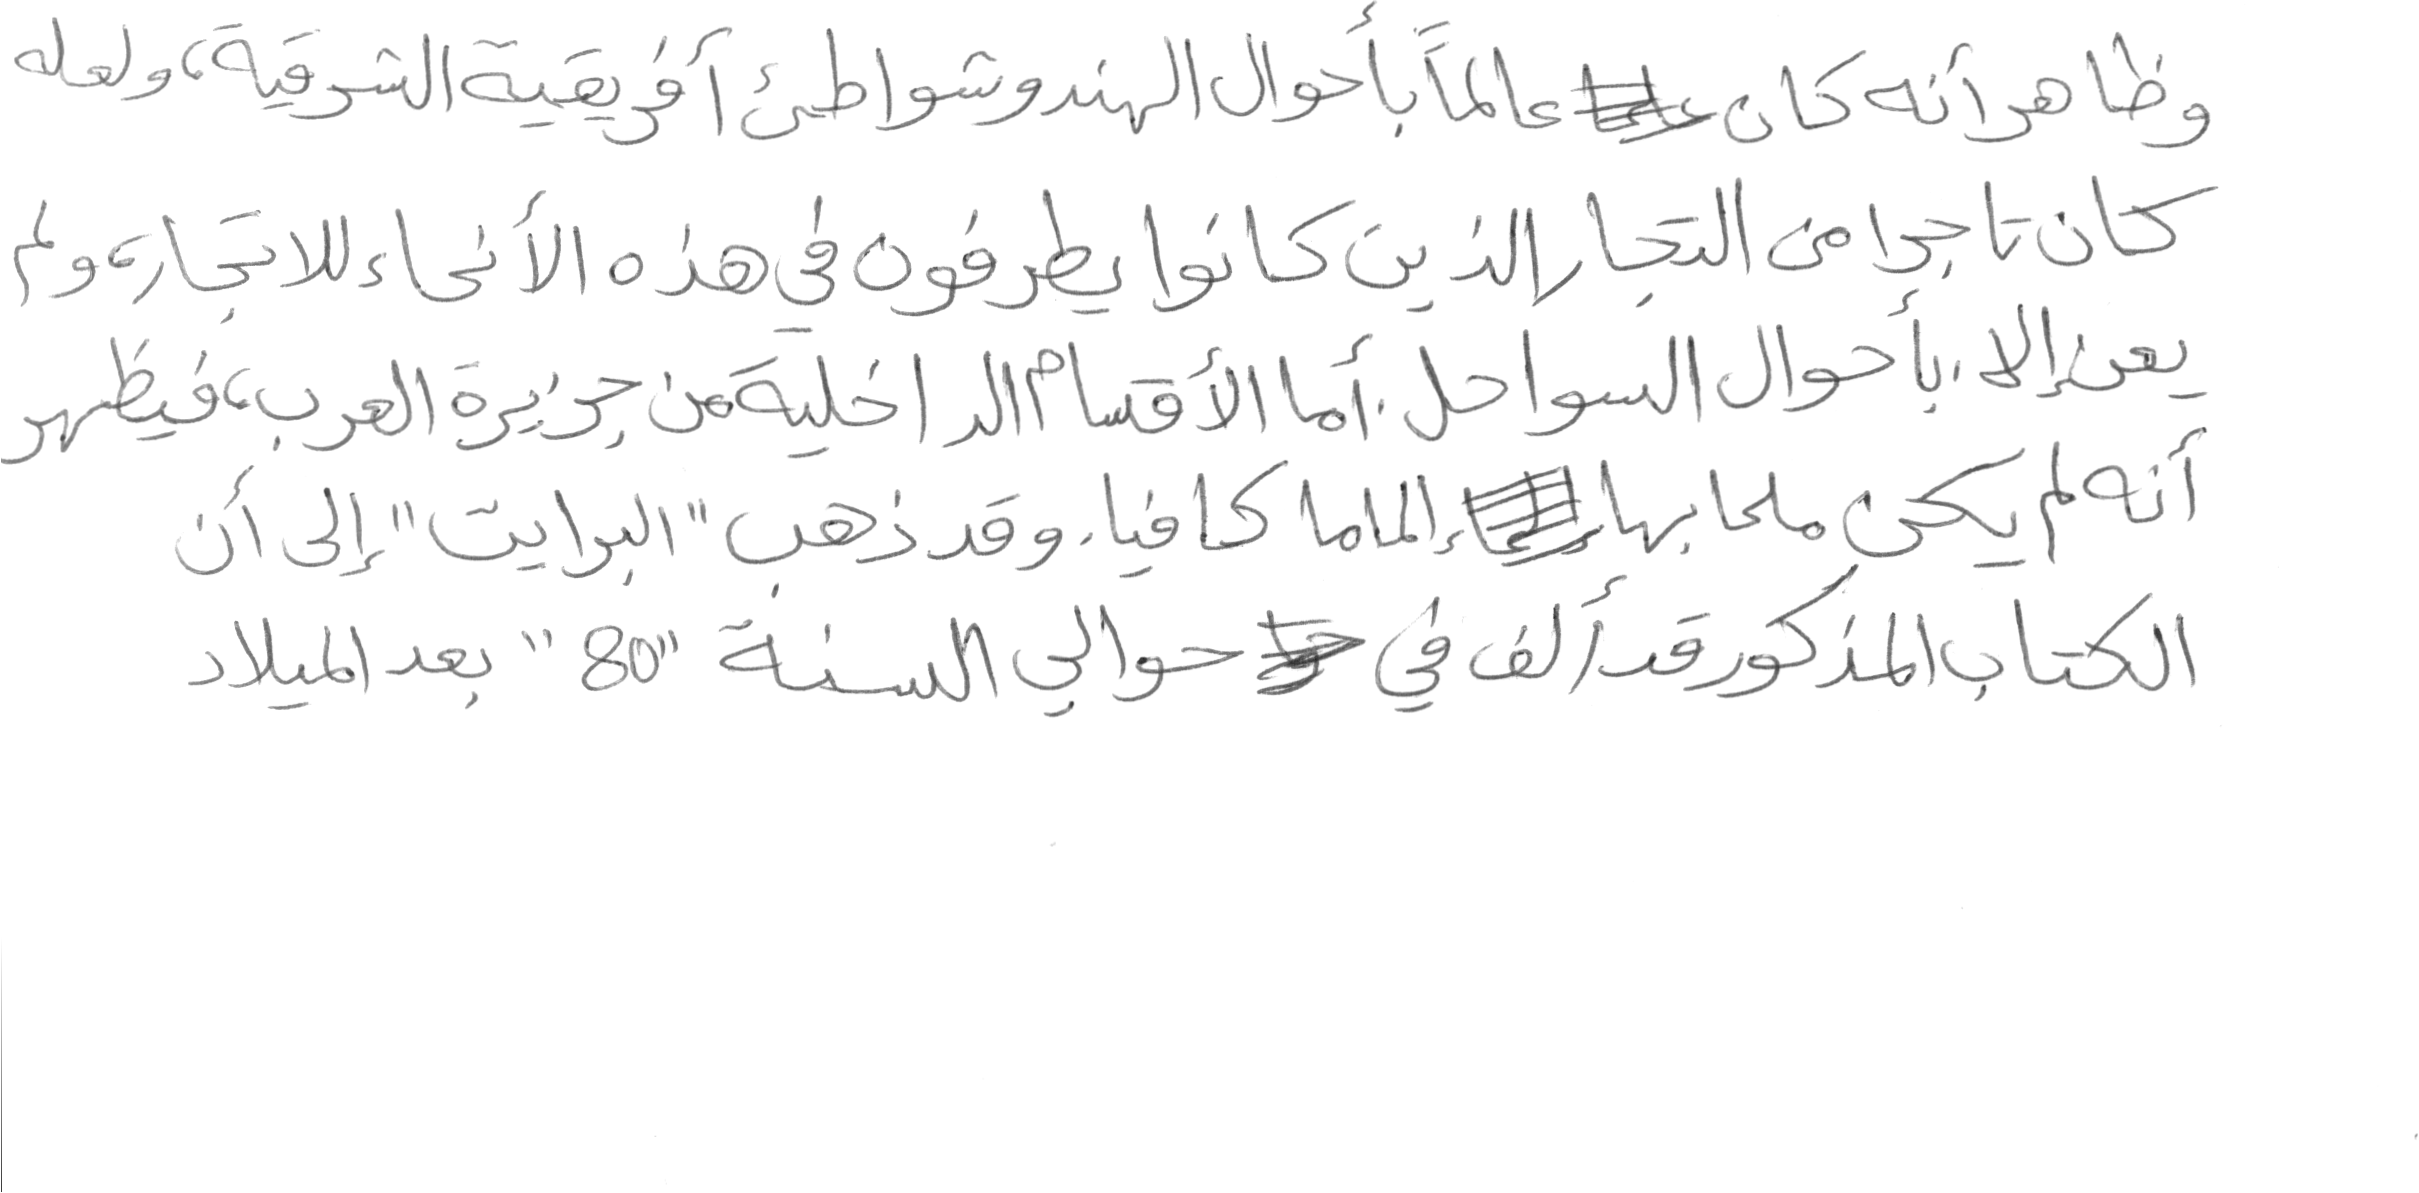 وظاهر أنه كان عالماً بأحوال الهند وشواطئ أفريقية الشرقية، ولعله
كان تاجرا من التجار الذين كانوا يطرفون في هذه الأنحاء للاتجار، ولم
يعن إلا بأحوال السواحل. أما الأقسام الداخلية من جزيرة العرب، فيظهر
أنه لم يكن ملما بها إلماما كافيا. وقد ذهب "البرايت" إلى أن
الكتاب المذكور قد ألف في حوالي السنة "80" بعد الميلاد